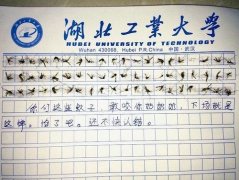 湖北工業大學
HUBEI UNIVERSITY OF TECHNOLOGY
Wuhan 430068, Hubei P.R.China 中国·武汉
你们这些蚊子，敢咬你奶奶的，下场就是
这样。怕了吧。还不快认错。